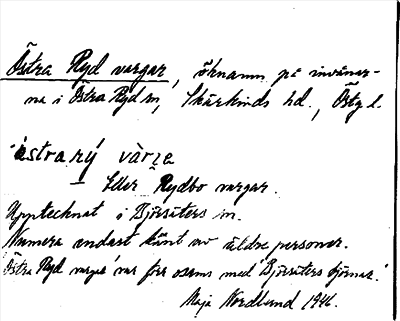 Östra Ryd vargar, öknamn på invånar-
na i Östra Ryd sn, Skärkinds hd., Östg l.
östrarý vàrɪa
Eller Rydbo vargar.
Upptecknat i Björsäters sn.
Numera endast känt av äldre personer.
Östra Ryd vargar var förr osams med Björsäters björnar.
Maja Nordlund 1946.